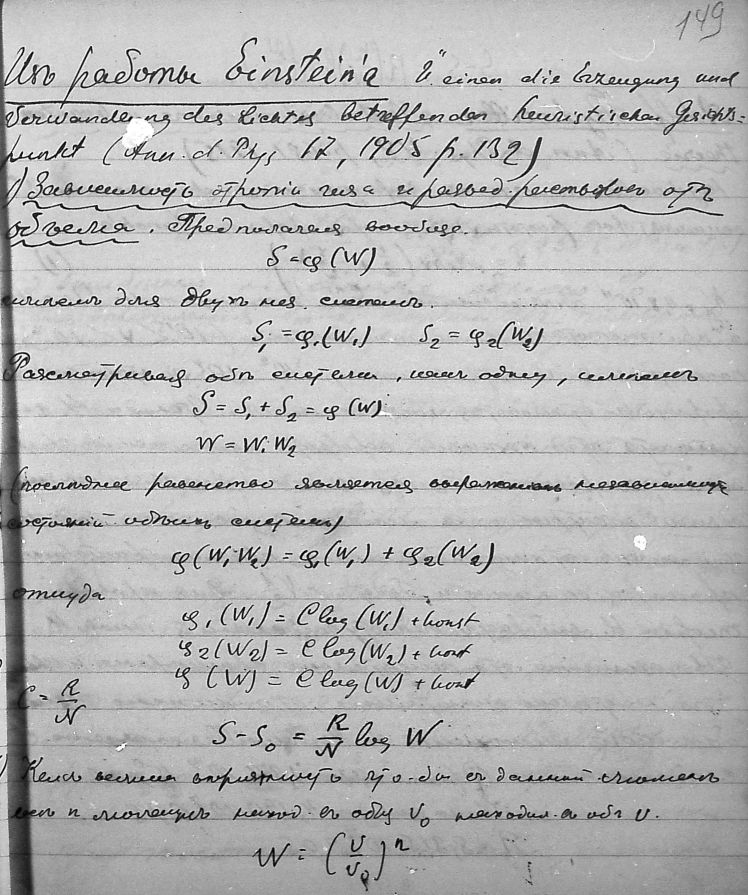 149
Изъ работы Einstein'a "Ü. einen die Erzeugung und
Verwandlung des Lichtes betreffenden heuristischen Gesichts=
punkt (Ann. d. Phys 17, 1905 p. 132)
) Зависимость отъ
объема. Предполагая вообще.
S = φ(W)
имѣемъ для двухъ нез. системъ.
S₁ = φ₁(W₁) S₂ = φ₂(W₂)
Разсматривая обѣ системы, какъ одну, имѣемъ
S = S₁ + S₂ = φ(W)
W = W₁ W₂
(послѣднее равенство является выраженiемъ независимости
состоянiй обѣихъ системъ)
φ(W₁·W₂) = φ₁(W₁) + φ₂(W₂)
откуда
φ₁(W₁) = C log(W₁) + const
φ₂(W₂) = C log(W₂) + const
φ(W) = C log(W) + const
C = R/N
S - S₀ = R/N log W
) велика вѣроятность что-бы въ данный
n молекулъ наход. въ объ v₀ находил. въ объ v.
W = (v/v₀)ⁿ